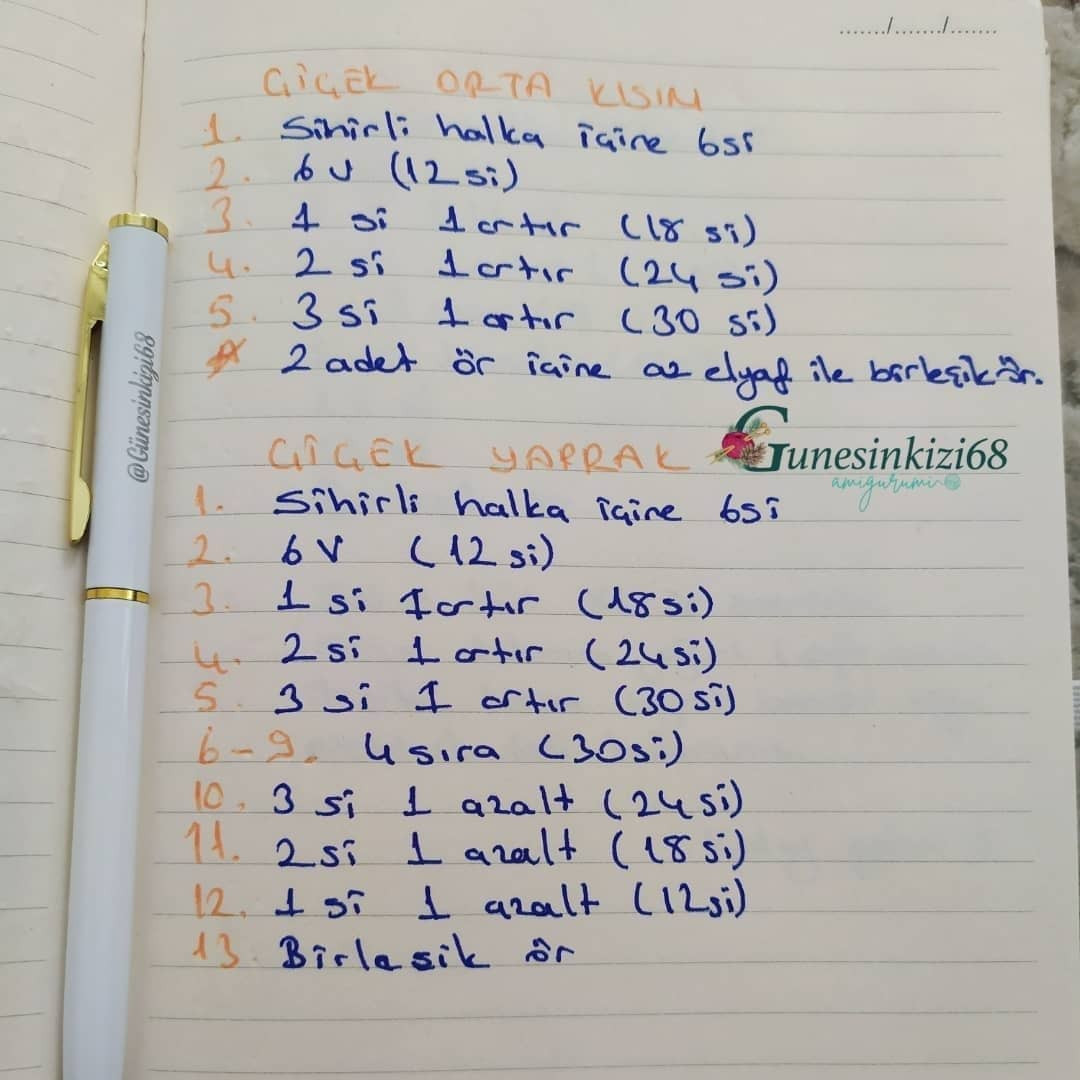 ....../......./.......
ÇİÇEK ORTA KISIM
1. Sihirli halka içine 6si
2. 6 V (12 si)
3. 1 si 1 artır (18 si)
4. 2 si 1 artır (24 si)
5. 3 si 1 artır (30 si)
☆ 2 adet ör içine az elyaf ile birleşik ör.
ÇİÇEK YAPRAK
Gunesinkizi68
amigurumi
1. Sihirli halka içine 6si
2. 6 V (12 si)
3. 1 si 1 artır (18 si)
4. 2 si 1 artır (24 si)
5. 3 si 1 artır (30 si)
6-9. 4 sıra (30si)
10. 3 si 1 azalt (24 si)
11. 2 si 1 azalt (18 si)
12. 1 si 1 azalt (12si)
13. Birleşik ör
@Günesinkizi68